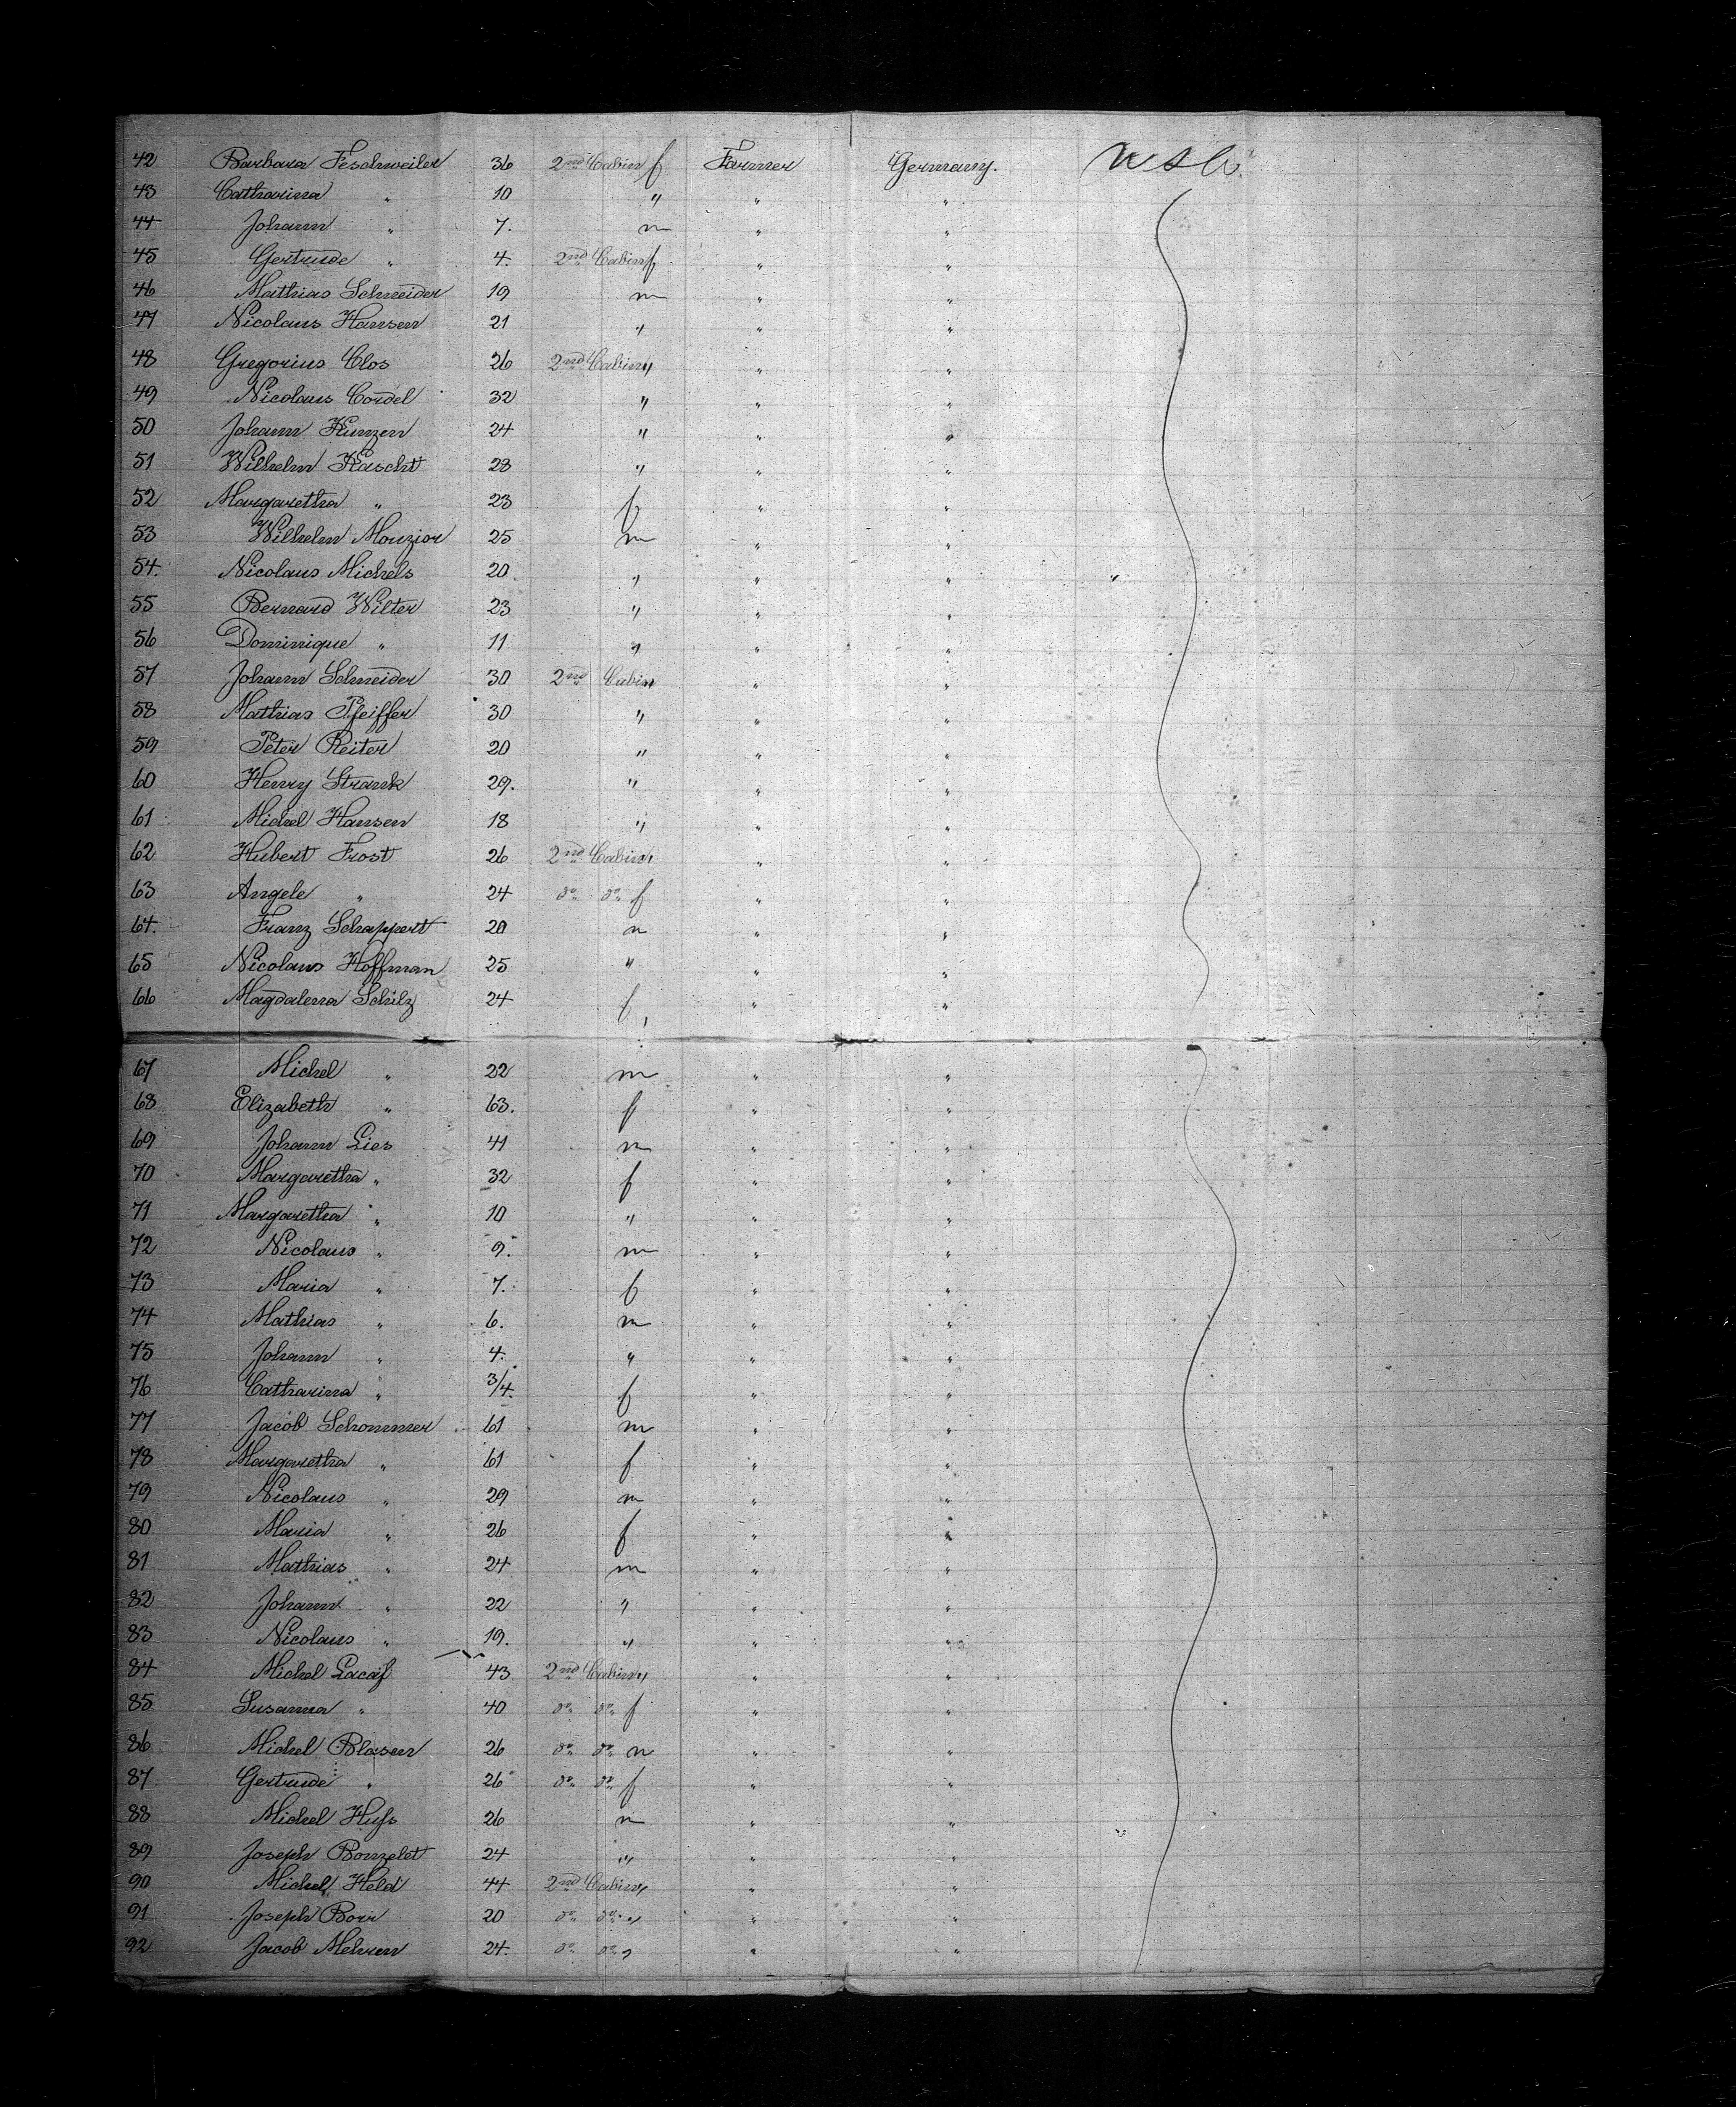 42 Barbara Feschweiler 36 2nd Cabin f Farmer Germany. USA
43 Catharina " 10 " " "
44 Johann " 7. m " "
45 Gertrude " 4. 2nd Cabin f " "
46 Mathias Schneider 19 m " "
47 Nicolaus Hansen 21 " " "
48 Gregorius Clos 26 2nd Cabin " " "
49 Nicolaus Cordel 32 " " "
50 Johann Kunzen 24 " " "
51 Wilhelm Kascht 28 " " "
52 Margaretha " 23 f " "
53 Wilhelm Mouzior 25 m " "
54. Nicolaus Michels 20 " " " "
55 Bernard Wilter 23 " " "
56 Dominique " 11 " " "
57 Johann Schneider 30 2nd Cabin " " "
58 Mathias Pfeiffer 30 " " "
59 Peter Reiter 20 " " "
60 Henry Strank 29. " " "
61 Michel Hansen 18 " " "
62 Hubert Frost 26 2nd Cabin " " "
63 Angele " 24 do do f " "
64. Franz Schappert 20 m " "
65 Nicolaus Hoffman 25 " " "
66 Magdalena Schilz 24 f " "
67 Michel " 22 m " "
68 Elizabeth " 63. f " "
69 Johann Lies 41 m " "
70 Margaretha " 32 f " "
71 Margaretha " 10 " " "
72 Nicolaus " 9. m " "
73 Maria " 7. f " "
74 Mathias " 6. m " "
75 Johann " 4. " " "
76 Catharina " 3/4. f " "
77 Jacob Schommer 61 m " "
78 Margaretha " 61 f " "
79 Nicolaus " 29 m " "
80 Maria " 26 f " "
81 Mathias " 24 m " "
82 Johann " 22 " " "
83 Nicolaus " 19. " " "
84 Michel 43 2nd Cabin " " "
85 Susanna " 40 do do f " "
86 Michel Blasen 26 do do m " "
87 Gertrude " 26 do do f " "
88 Michel Huss 26 m " "
89 Joseph Bonzelet 24 " " "
90 Michel Held 44 2nd Cabin " " "
91 Joseph Borr 20 do do " " "
92 Jacob Mehren 24. do do " " "